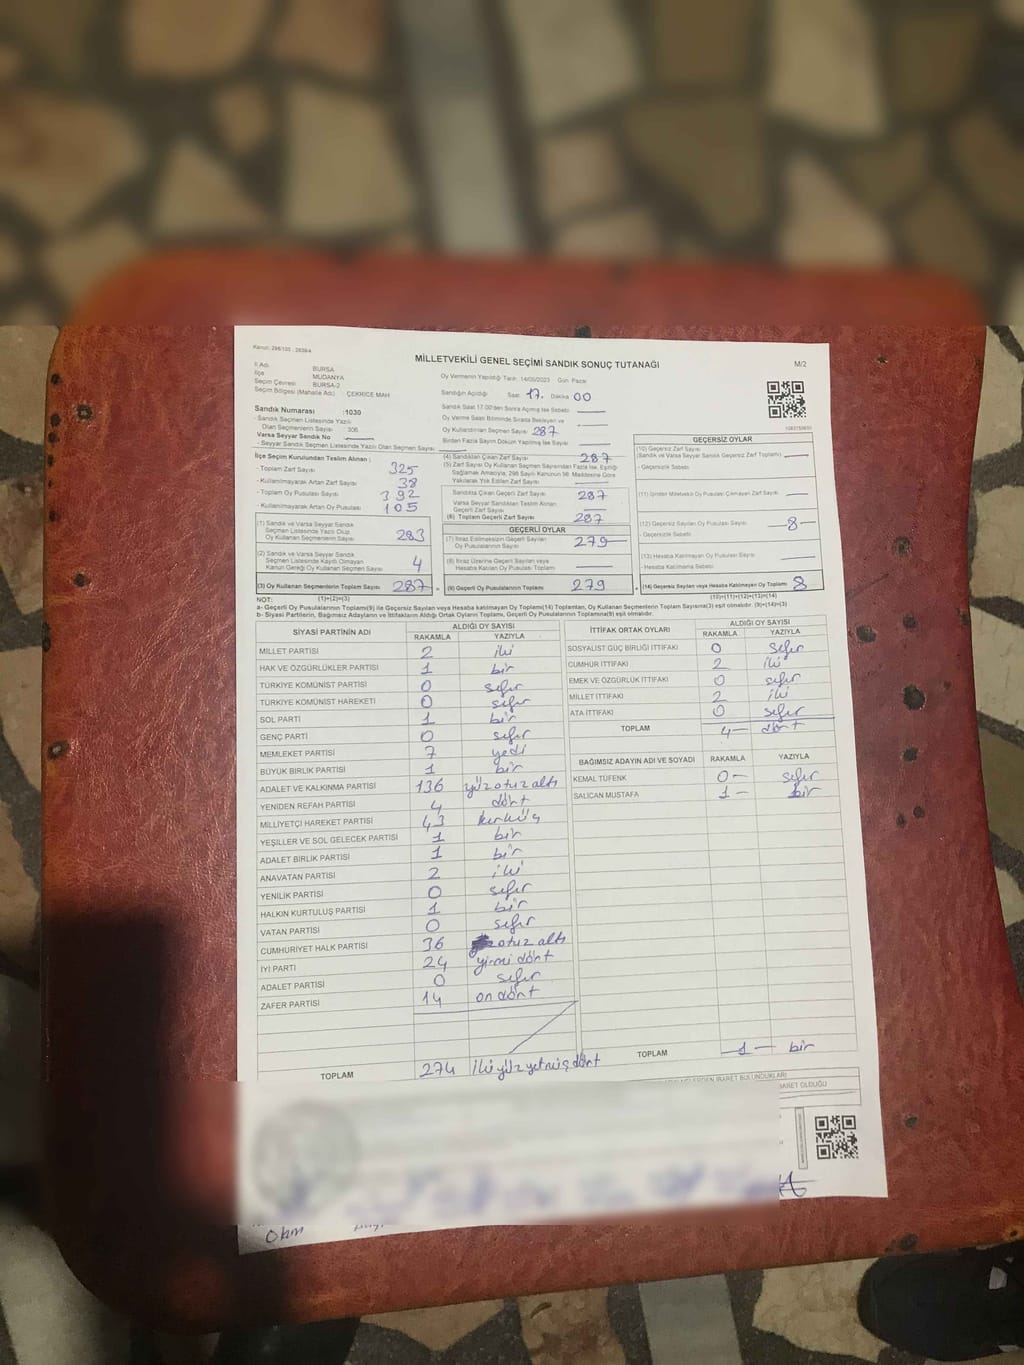 Kanun: 298/105 , 2839/4
MİLLETVEKİLİ GENEL SEÇİMİ SANDIK SONUÇ TUTANAĞI
M/2
İl Adı BURSA
İlçe MUDANYA
Seçim Çevresi BURSA-2
Seçim Bölgesi (Mahalle Adı) ÇEKRİCE MAH
Oy Vermenin Yapıldığı Tarih :14/05/2023 Gün: Pazar
Sandığın Açıldığı Saat 17. Dakika 00
Sandık Saat 17.00'den Sonra Açılmış İse Sebebi
Oy Verme Saati Bitiminde Sırada Bekleyen ve
Oy Kullandırılan Seçmen Sayısı 287
Birden Fazla Sayım Döküm Yapılmış İse Sayısı
Sandık Numarası :1030
- Sandık Seçmen Listesinde Yazılı
Olan Seçmenlerin Sayısı 306
Varsa Seyyar Sandık No
- Seyyar Sandık Seçmen Listesinde Yazılı Olan Seçmen Sayısı
İlçe Seçim Kurulundan Teslim Alınan ;
- Toplam Zarf Sayısı 325
- Kullanılmayarak Artan Zarf Sayısı 38
- Toplam Oy Pusulası Sayısı 392
- Kullanılmayarak Artan Oy Pusulası 105
(1) Sandık ve Varsa Seyyar Sandık
Seçmen Listesinde Yazılı Olup,
Oy Kullanan Seçmenlerin Sayısı 283
(2) Sandık ve Varsa Seyyar Sandık
Seçmen Listesinde Kayıtlı Olmayan
Kanun Gereği Oy Kullanan Seçmen Sayısı 4
(3) Oy Kullanan Seçmenlerin Toplam Sayısı 287
(1)+(2)=(3)
(4) Sandıktan Çıkan Zarf Sayısı 287
(5) Zarf Sayısı Oy Kullanan Seçmen Sayısından Fazla İse, Eşitliği
Sağlamak Amacıyla, 298 Sayılı Kanunun 98. Maddesine Göre
Yakılarak Yok Edilen Zarf Sayısı
Sandıkta Çıkan Geçerli Zarf Sayısı 287
Varsa Seyyar Sandıktan Teslim Alınan
Geçerli Zarf Sayısı
(6) Toplam Geçerli Zarf Sayısı 287
GEÇERLİ OYLAR
(7) İtiraz Edilmeksizin Geçerli Sayılan
Oy Pusulalarının Sayısı 279
(8) İtiraz Üzerine Geçerli Sayılan veya
Hesaba Katılan Oy Pusulası Toplamı
(9) Geçerli Oy Pusulalarının Toplamı 279
GEÇERSİZ OYLAR
(10) Geçersiz Zarf Sayısı
(Sandık ve Varsa Seyyar Sandık Geçersiz Zarf Toplamı)
- Geçersizlik Sebebi
(11) İçinden Milletvekili Oy Pusulası Çıkmayan Zarf Sayısı
(12) Geçersiz Sayılan Oy Pusulası Sayısı 8
- Geçersizlik Sebebi
(13) Hesaba Katılmayan Oy Pusulası Sayısı
- Hesaba Katılmama Sebebi
(14) Geçersiz Sayılan veya Hesaba Katılmayan Oy Toplamı 8
(10)+(11)+(12)+(13)=(14)
NOT:
a- Geçerli Oy Pusulalarının Toplamı(9) ile Geçersiz Sayılan veya Hesaba katılmayan Oy Toplamı(14) Toplamları, Oy Kullanan Seçmenlerin Toplam Sayısına(3) eşit olmalıdır. (9)+(14)=(3)
b- Siyasi Partilerin, Bağımsız Adayların ve İttifakların Aldığı Ortak Oyların Toplamı, Geçerli Oy Pusulalarının Toplamına(9) eşit olmalıdır.
SİYASİ PARTİNİN ADI ALDIĞI OY SAYISI
RAKAMLA YAZIYLA
MİLLET PARTİSİ 2 iki
HAK VE ÖZGÜRLÜKLER PARTİSİ 1 bir
TÜRKİYE KOMÜNİST PARTİSİ 0 sıfır
TÜRKİYE KOMÜNİST HAREKETİ 0 sıfır
SOL PARTİ 1 bir
GENÇ PARTİ 0 sıfır
MEMLEKET PARTİSİ 7 yedi
BÜYÜK BİRLİK PARTİSİ 1 bir
ADALET VE KALKINMA PARTİSİ 136 yüzotuz altı
YENİDEN REFAH PARTİSİ 4 dört
MİLLİYETÇİ HAREKET PARTİSİ 43 kırküç
YEŞİLLER VE SOL GELECEK PARTİSİ 1 bir
ADALET BİRLİK PARTİSİ 1 bir
ANAVATAN PARTİSİ 2 iki
YENİLİK PARTİSİ 0 sıfır
HALKIN KURTULUŞ PARTİSİ 1 bir
VATAN PARTİSİ 0 sıfır
CUMHURİYET HALK PARTİSİ 36 otuz altı
İYİ PARTİ 24 yirmi dört
ADALET PARTİSİ 0 sıfır
ZAFER PARTİSİ 14 on dört
TOPLAM 274 ikiyüzyetmiş dört
İTTİFAK ORTAK OYLARI ALDIĞI OY SAYISI
RAKAMLA YAZIYLA
SOSYALİST GÜÇ BİRLİĞİ İTTİFAKI 0 sıfır
CUMHUR İTTİFAKI 2 iki
EMEK VE ÖZGÜRLÜK İTTİFAKI 0 sıfır
MİLLET İTTİFAKI 2 iki
ATA İTTİFAKI 0 sıfır
TOPLAM 4 dört
BAĞIMSIZ ADAYIN ADI VE SOYADI RAKAMLA YAZIYLA
KEMAL TÜFENK 0 sıfır
SALICAN MUSTAFA 1 bir
TOPLAM 1 bir
İBARET BULUNDUKLARI
BARET OLDUĞU